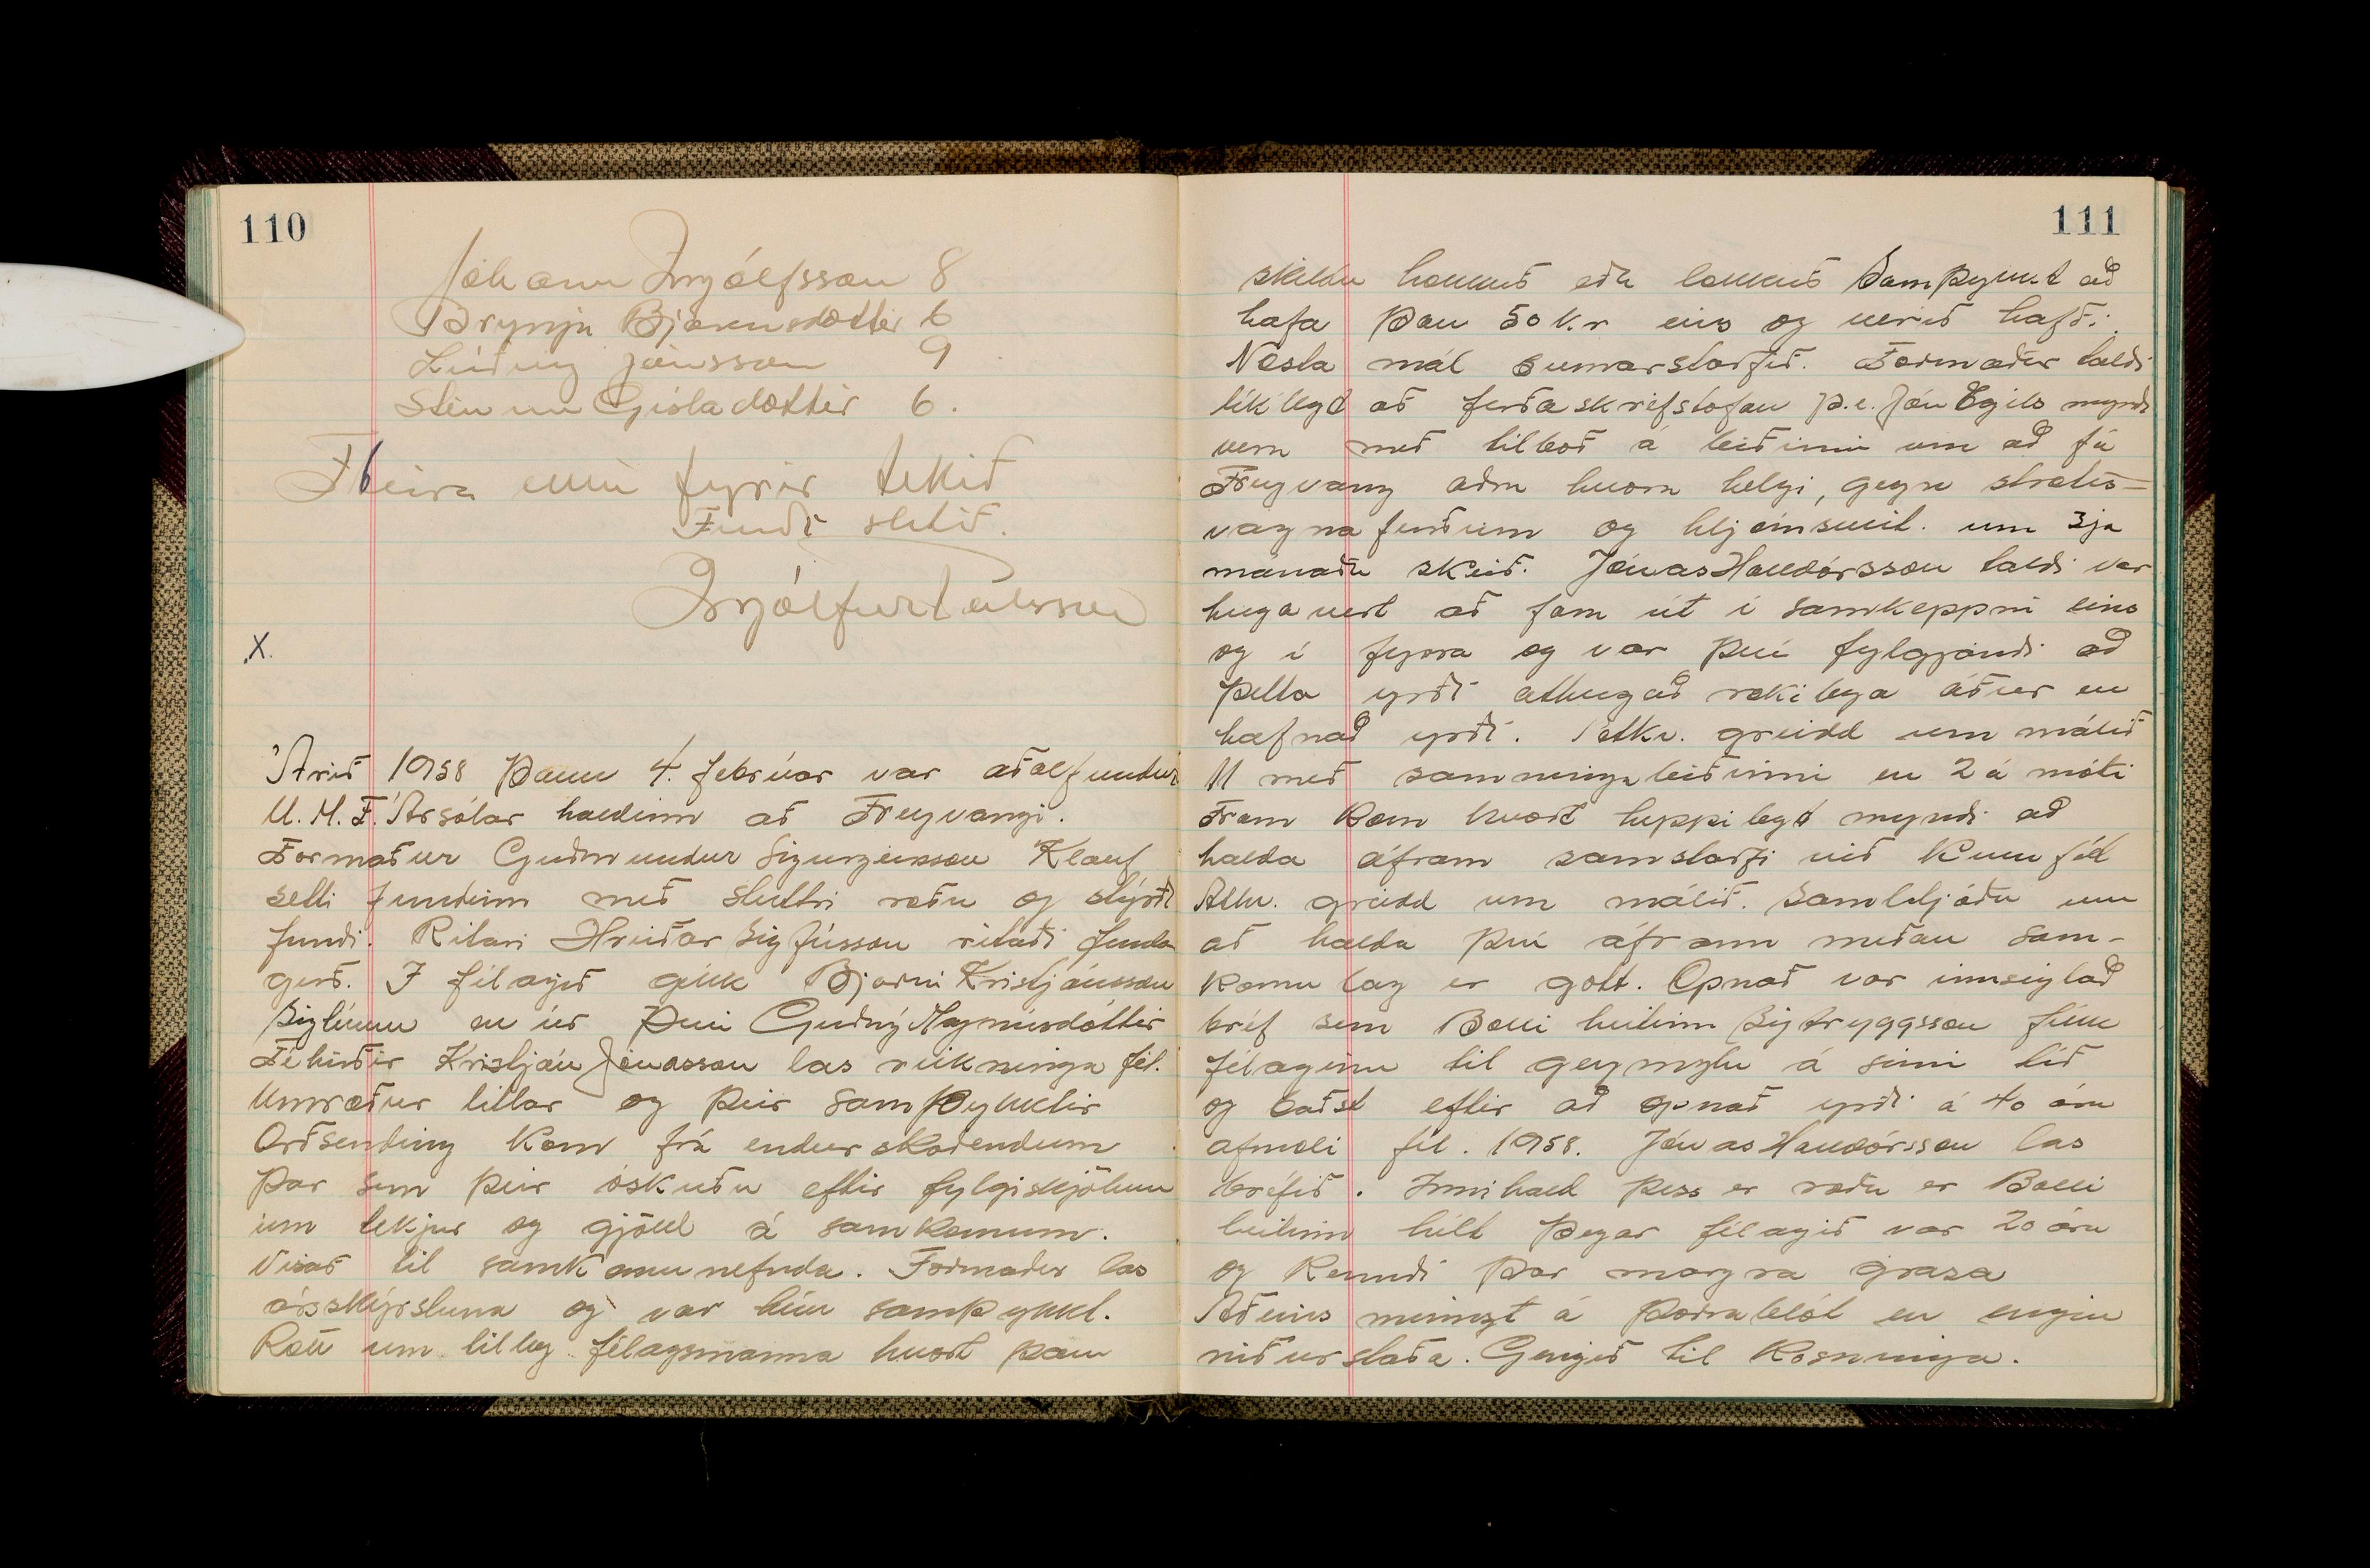 110
Jóhann Ingólfsson 8
Brynja Bjarnadóttir 6
Lúðvíg Jónsson 9
Steinunn Gísladóttir 6.
Fleira ekki fyrir tekið
Fundi slitið.
Ingólfur Pálsson
X.
Árið 1958 þann 4. febrúar var aðalfundur
U.M.F. Ársólar haldinn að Freyvangi.
Formaður Guðmundur Sigurgeirsson Klauf
setti fundinn með stuttri ræðu og stýrði
fundi. Ritari Hreiðar Sigfússon ritaði funda
gerð. I félagið gekk Bjarni Kristjánsson
Sigtúnum en úr því Guðný Magnúsdóttir
Féhirðir Kristján Jónasson las reikninga fél.
Umræður litlar og þeir samþykktir
Orðsending kom frá endurskoðendum
þar sem þeir óskuðu eftir fylgiskjölum
um tekjur og gjöld á samkomum.
Vísað til samkomunefnda. Formaður las
ársskýrsluna og var hún samþykkt.
Rætt um tillög félagsmanna hvort þau
111
skildu hækkuð eða lækkuð Samþykkt að
hafa þau 50 kr eins og verið hafði.
Næsta mál sumarstarfið. Formaður taldi
líklegt að ferðaskrifstofan þ.e. Jón Egils myndi
vera með tilboð á leiðinni um að fá
Freyvang aðra hvora helgi, gegn strætis-
vagnaferðum og hljómsveit. um 3ja
mánaða skeið. Jónas Halldórsson taldi var
hugavert að fara út í samkeppni eins
og í fyrra og var því fylgjandi að
þetta yrði athugað rækilega áður en
hafnað yrði. Atkv. greidd um málið
11 með samningaleiðinni en 2 á móti
Fram kom hvort heppilegt myndi að
halda áfram samstarfi við Kvenfél
Atkv. greidd um málið. Samhljóða um
að halda því áfram meðan sam-
komulag er gott. Opnað var innsiglað
bréf sem Balli heitinn Sigtryggsson fékk
félaginu til geymslu á sinni tíð
og baðst eftir að opnað yrði á 40 ára
afmæli fél. 1958. Jónas Halldórsson las
bréfið. Innihald þess er ræða er Balli
heitinn hélt þegar félagið var 20 ára
og kenndi þar margra grasa
Aðeins minnzt á þorrablót en engin
niðurstaða. Gengið til kosninga.